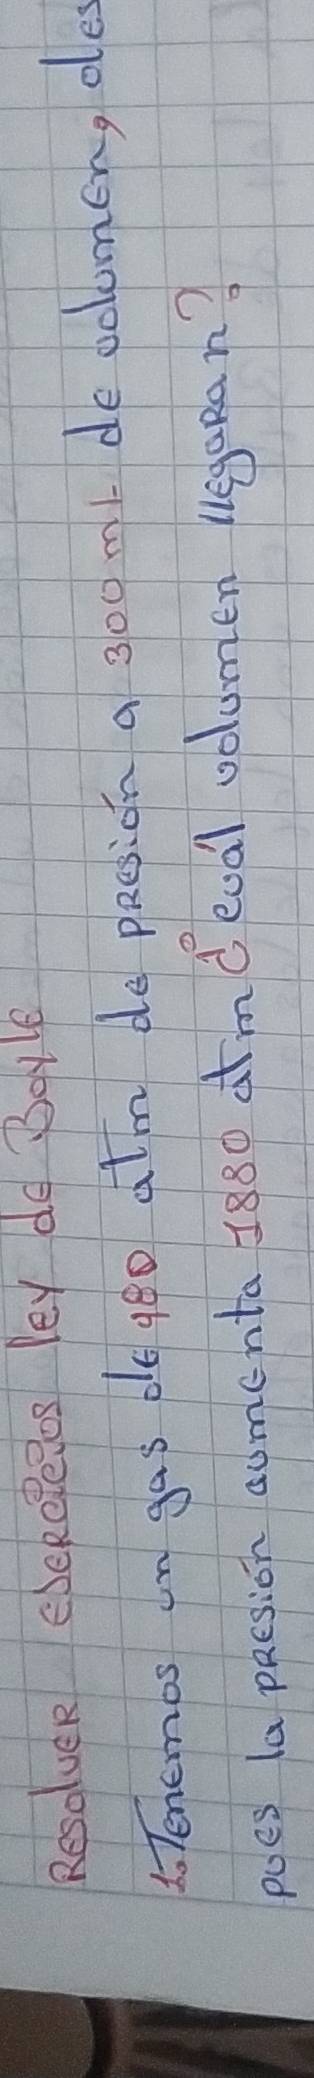 Resolver ejercicios ley de Boyle
1. Tenemos un gas de 480 atm de presión a 300 ml de volumen, des
pues la presión aumenta 1880 atm ¿cuál volumen llegaran?